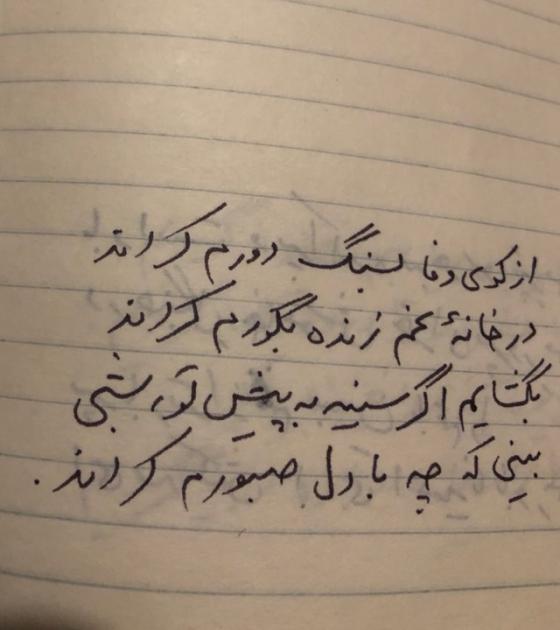 از کوی وفا بسنگ دورم کردند
در خانهٔ غم زنده بگورم کردند
بگشایم اگر سینه به پیش تو، شبی
بینی که چه با دل صبورم کردند.